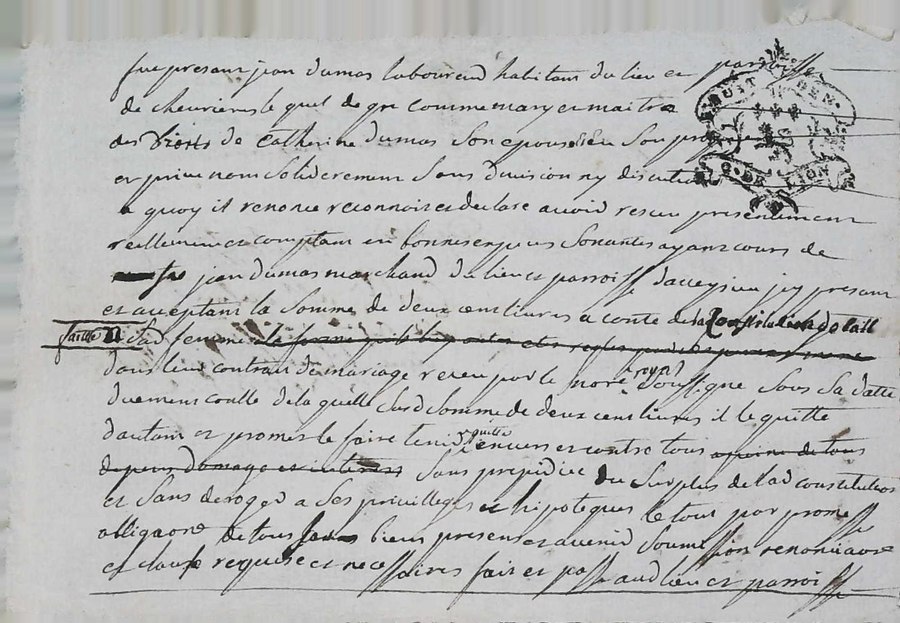 fut presant jean dumas laboureur habitant du lieu et parroisse
de chevrieres le quel de gre comme mary et maitre
des droits de Catherine dumas son epouse en son propre
et prive nom soliderement sans division ny discution
a quoy il renonce reconnoit et declare avoir receu presentement
reellement et comptant en bonnes especes sonantes ayant cours de
jean dumas marchand du lieu et parroisse d'aveyzieu icy present
et acceptant la somme de deux cent livres a conte de la Constitution de lad
faitte a sad femme
dans leur contrat de mariage receu par le nore soussigne sous sa datte
duement contlle de la quelle susd somme de deux cent livres il le quitte
d'autant et promet le faire tenir quitte envers et contre tous a peine de tous
depens domage et interets sans prejudice du surplus de lad constitution
et sans deroger a ses privilleges et hipoteques le tout par promesse
obligaore de tous biens presens et avenir soumission renonciaore
et clause requise et necessaires fait et passe aud lieu et parroisse
HUIT DEN.
G. DE LION